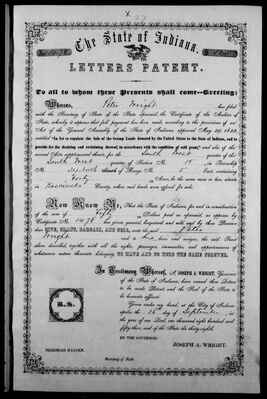 The State of Indiana.
LETTERS PATENT.
To all to whom these Presents shall come—Greeting:
Whereas, Peter Wright has filed
with the Secretary of State of the State aforesaid, the Certificate of the Auditor of
State, whereby it appears that full payment has been made, according to the provisions of an
Act of the General Assembly of the State of Indiana, approved May 29, 1852,
entitled "An Act to regulate the sale of the Swamp Lands donated by the United States to the State of Indiana, and to
provide for the draining and reclaiming thereof, in accordance with the condition of said grant;" and also of the
several Acts supplemental thereto, for the South West quarter of the
South West quarter of Section No. 15 in Township
of Range No. East, containing
Forty Acres, be the same more or less, which in
Kosciusko County, where said lands are offered for sale.
Now Know Ye, That the State of Indiana, for and in consideration
of the sum of Fifty Dollars, paid as aforesaid, as appears by
Certificate No. 1478 has given, granted, bargained and sold, and by these Presents
does GIVE, GRANT, BARGAIN, AND SELL, unto the said Peter
Wright and to his heirs and assigns, the said Tract
above described, together with all the rights, privileges, immunities, and appurtenances of
whatsoever nature thereunto belonging, TO HAVE AND TO HOLD THE SAME FOREVER.
In Testimony Whereof, I, JOSEPH A. WRIGHT, Governor
of the State of Indiana, have caused these Letters
to be made Patent, and the Seal of the State to
be hereunto affixed.
Given under my hand, at the City of Indianapolis,
the 26 day of September, in
the year of our Lord one thousand eight hundred and
fifty three, and of the State the thirty-eighth.
BY THE GOVERNOR:
JOSEPH A. WRIGHT.
L.S.
NEHEMIAH HAYDEN,
Secretary of State.